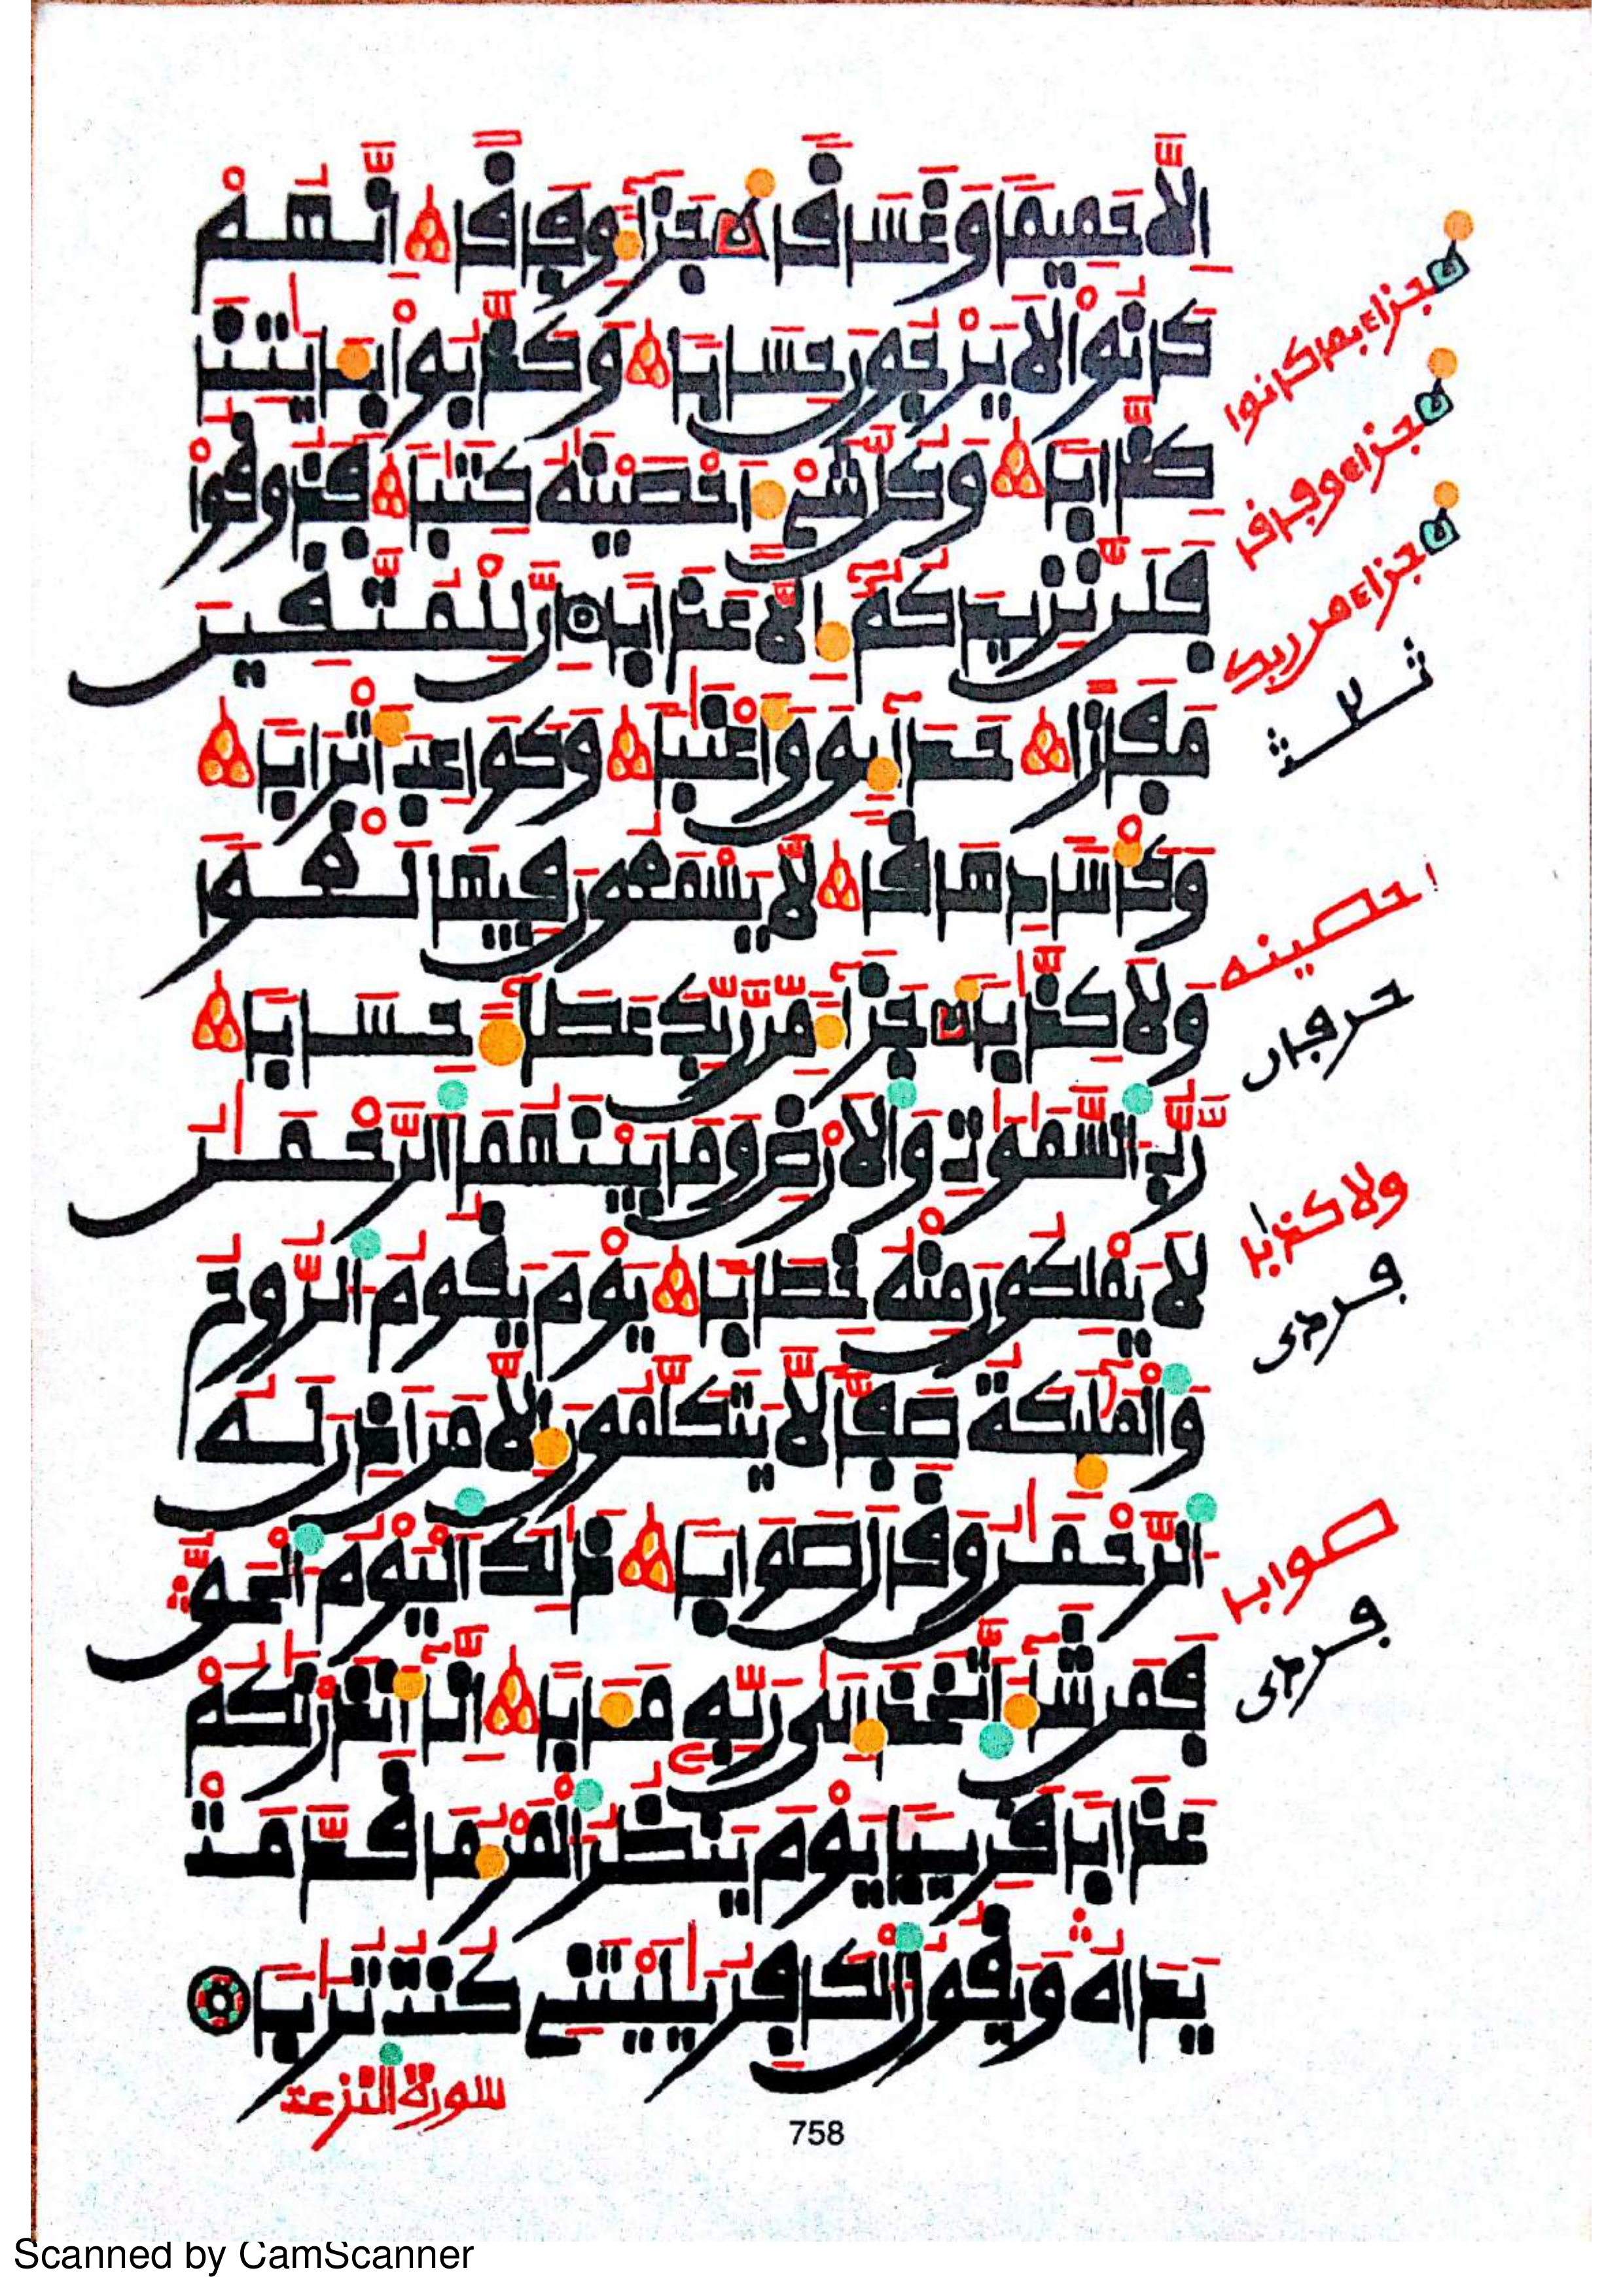 إِلَّا حَمِيمًا وَغَسَاقًا جَزَآءً وِفَاقًا إِنَّهُمْ
كَانُوا۟ لَا يَرْجُونَ حِسَابًا وَكَذَّبُوا۟ بِـَٔايَـٰتِنَا
كِذَّابًا وَكُلَّ شَىْءٍ أَحْصَيْنَـٰهُ كِتَـٰبًا فَذُوقُوا۟
فَلَن نَّزِيدَكُمُۥٓ إِلَّا عَذَابًا إِنَّ لِلْمُتَّقِينَ
مَفَازًا حَدَآئِقَ وَأَعْنَـٰبًا وَكَوَاعِبَ أَتْرَابًا
وَكَأْسًا دِهَاقًا لَّا يَسْمَعُونَ فِيهَا لَغْوًا
وَلَا كِذَّٰبًا جَزَآءً مِّن رَّبِّكَ عَطَآءً حِسَابًا
رَّبُّ السَّمَـٰوَٰتِ وَالْأَرْضِ وَمَا بَيْنَهُمَا الرَّحْمَـٰنُ
لَا يَمْلِكُونَ مِنْهُ خِطَابًا يَوْمَ يَقُومُ الرُّوحُ
وَالْمَلَـٰٓئِكَةُ صَفًّا لَّا يَتَكَلَّمُونَ إِلَّا مَنْ أَذِنَ لَهُ
الرَّحْمَـٰنُ وَقَالَ صَوَابًا ذَٰلِكَ الْيَوْمُ الْحَقُّ
فَمَن شَآءَ اتَّخَذَ إِلَىٰ رَبِّهِۦ مَـَٔابًا إِنَّآ أَنذَرْنَـٰكُمْ
عَذَابًا قَرِيبًا يَوْمَ يَنظُرُ الْمَرْءُ مَا قَدَّمَتْ
يَدَاهُ وَيَقُولُ الْكَافِرُ يَـٰلَيْتَنِى كُنتُ تُرَٰبًا
سورة النزعت
جزاء بما كانوا
جزاء وفاقا
جزاء من ربك
احصينه
حرفان
ولا كذبا
فردى
صوابا
فردى
758
Scanned by CamScanner